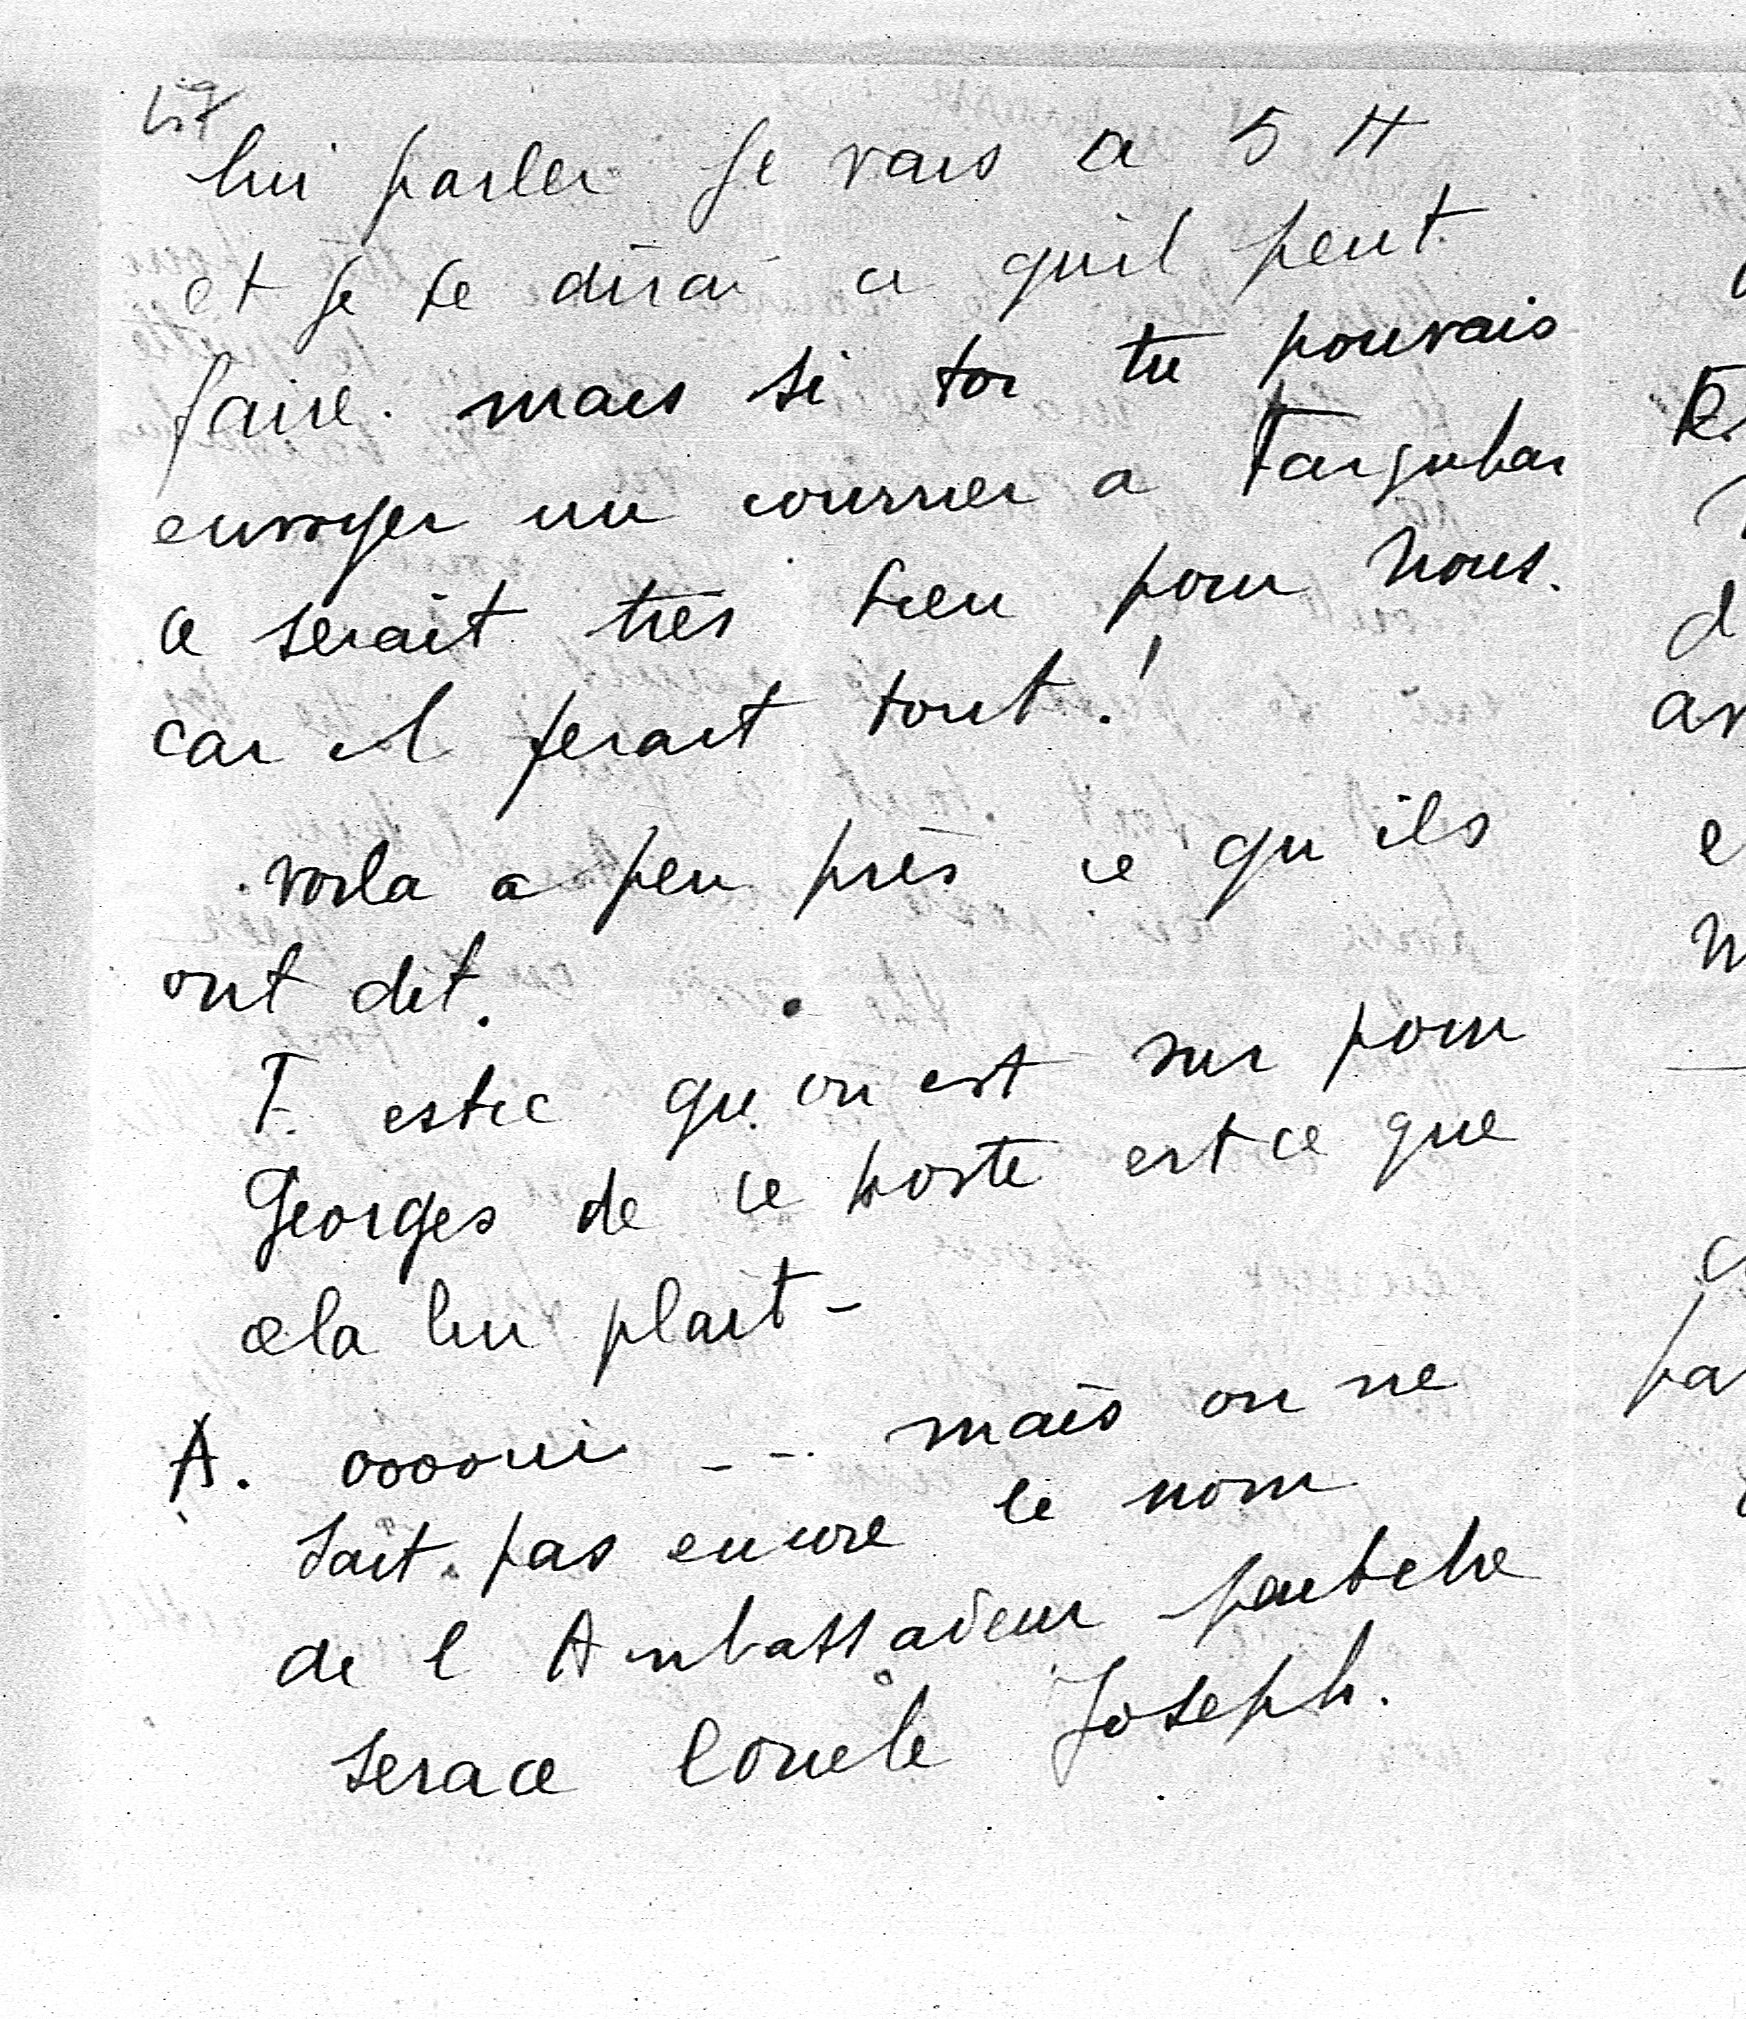 57
lui parler je vais a 5 H
et je te dirai ce quil peut
faire. mais si toi tu pouvais
envoyer un courrier a Farquhar
ce serait très bien pour nous.
car il ferait tout!
voila a peu près ce qu'ils
ont dit.
F. estce qu'on est sur pour
Georges de ce poste est ce que
cela lui plait -
A. oooouii - - . mais on ne
sait pas encore le nom
de l Ambassadeur peutetre
serace loncle Joseph.